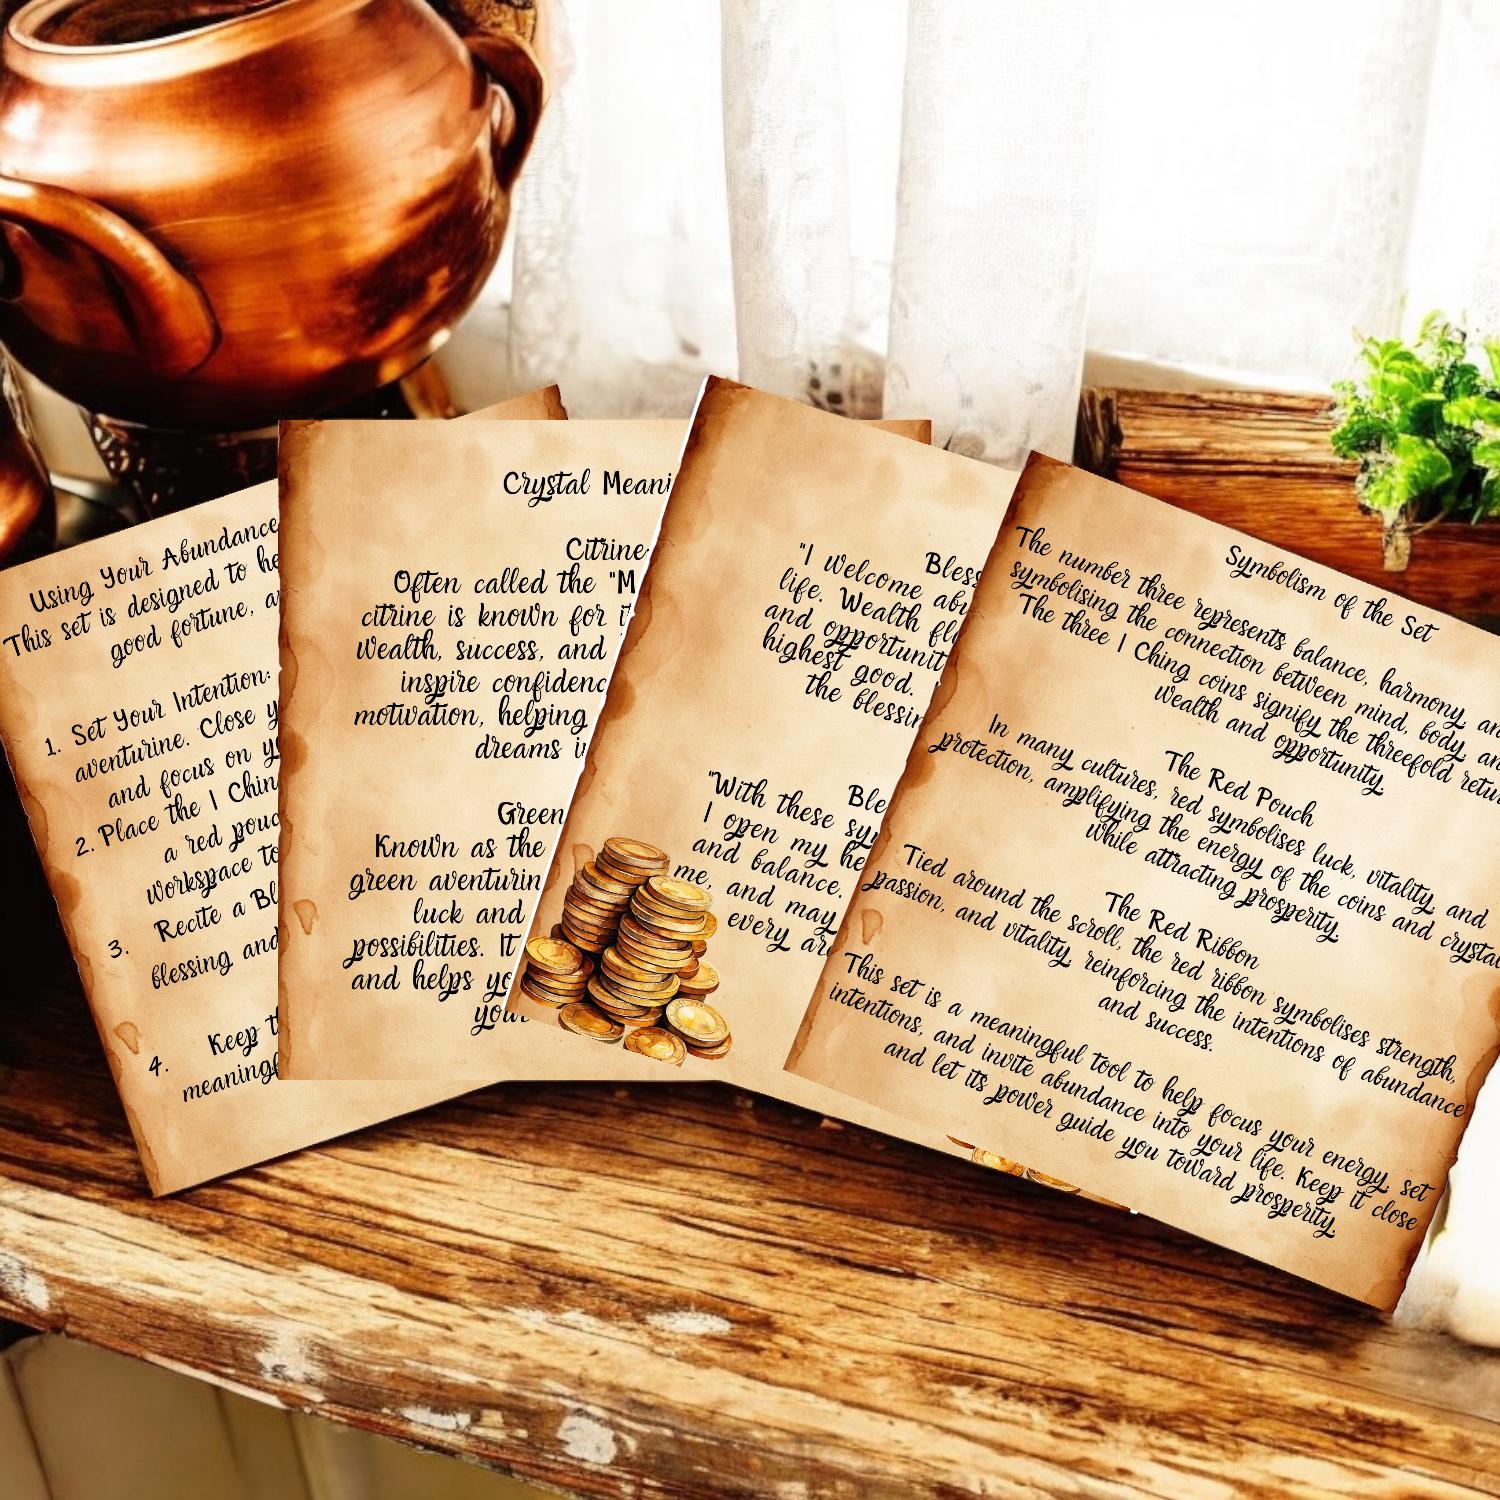 Using Your Abundance
This set is designed to
good fortune,
1. Set Your Intention:
aventurine. Close
and focus on
2. Place the I
a red
workspace to
3. Recite a
blessing and
4. Keep
Crystal
Citrine
Often called the
citrine is known for
wealth, success, and
inspire
motivation, helping
dreams
Green
Known as the
green
luck and
possibilities. It
and helps
"I welcome
life. Wealth
and
highest good.
the
"With these
I open my
and balance.
me, and may
every
Symbolism of the Set
The number three represents balance, harmony,
symbolising the connection between mind, body,
The three I Ching coins signify the threefold
wealth and opportunity.
The Red Pouch
In many cultures, red symbolises luck, vitality, and
protection, amplifying the energy of the coins and
while attracting prosperity.
The Red Ribbon
Tied around the scroll, the red ribbon symbolises strength,
passion, and vitality, reinforcing the intentions of abundance
and success.
This set is a meaningful tool to help focus your energy, set
intentions, and invite abundance into your life. Keep it close
and let its power guide you toward prosperity.